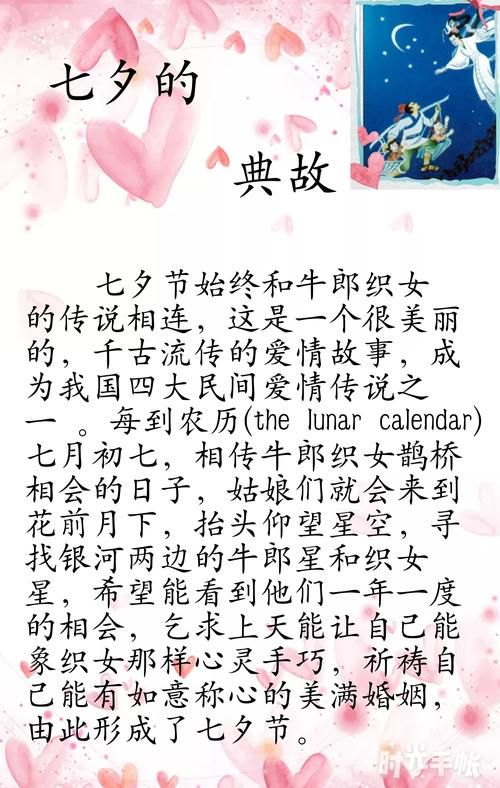 七夕的
典故
七夕节始终和牛郎织女
的传说相连，这是一个很美丽
的，千古流传的爱情故事，成
为我国四大民间爱情传说之
一 。每到农历(the lunar calendar)
七月初七，相传牛郎织女鹊桥
相会的日子，姑娘们就会来到
花前月下，抬头仰望星空，寻
找银河两边的牛郎星和织女
星，希望能看到他们一年一度
的相会，乞求上天能让自己能
象织女那样心灵手巧，祈祷自
己能有如意称心的美满婚姻，
由此形成了七夕节。
时光手帐